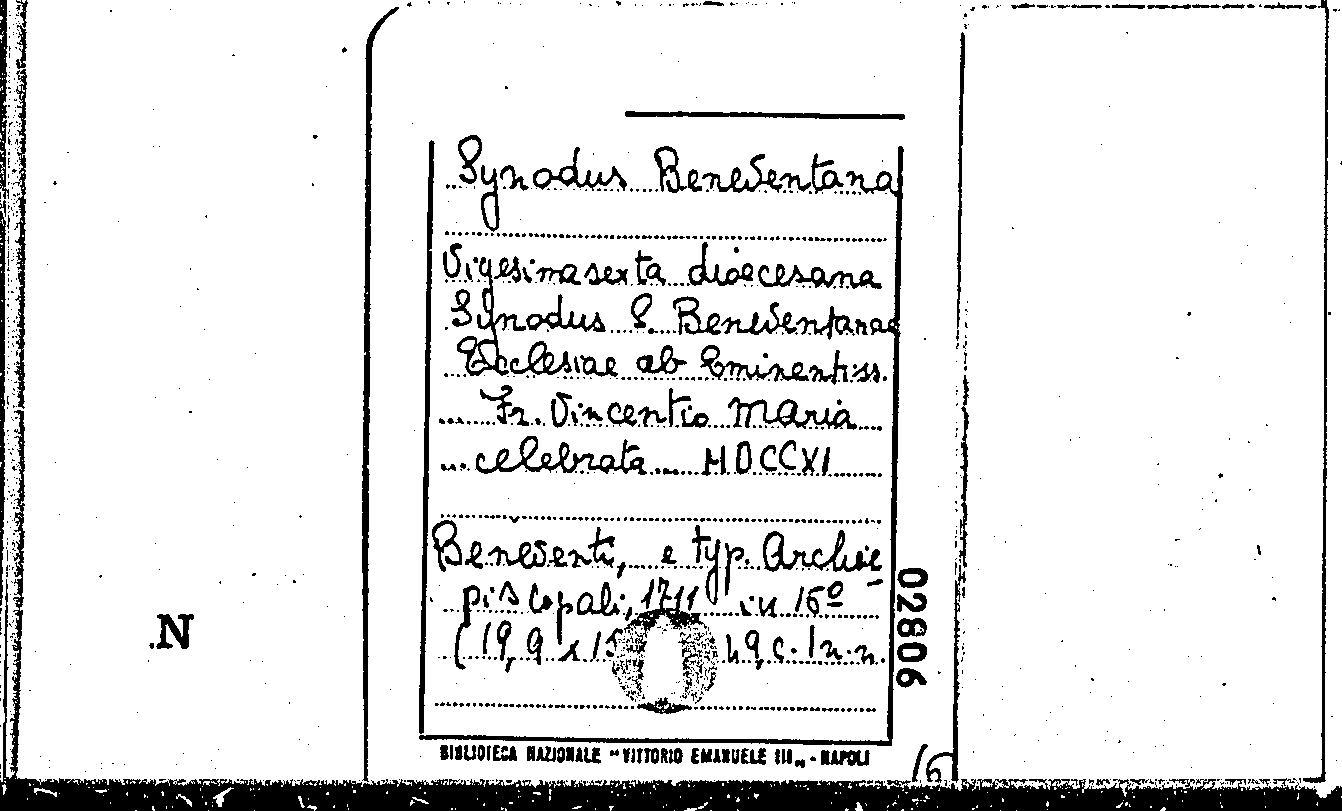 Synodus Beneventana
Vigesimasexta dioecesana
Synodus S. Beneventanae
Ecclesiae ab Eminentiss.
... Fr. Vincentio Maria ...
... celebrata ... MDCCXI
Beneventi, e typ. Archie-
piscopali, 1711 in 16º
(19,9 x 15 49, c. 1 n.n.
02806
BIBLIOTECA NAZIONALE "VITTORIO EMANUELE III„ - NAPOLI
16
.N